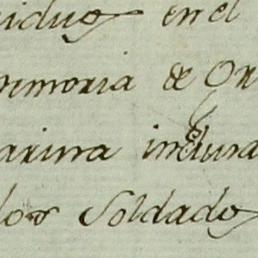 viduos en el
memoria de Or
arina inclusa
los Soldados